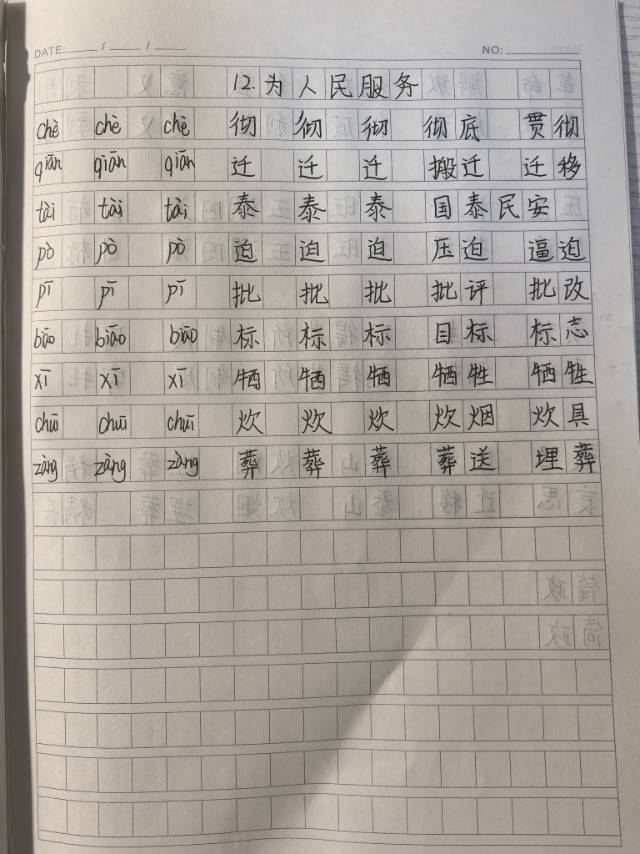 DATE: / /
NO:
12.为人民服务
chè chè chè 彻 彻 彻 彻底 贯彻
qiān qiān qiān 迁 迁 迁 搬迁 迁移
tài tài tài 泰 泰 泰 国泰民安
pò pò pò 迫 迫 迫 压迫 逼迫
pī pī pī 批 批 批 批评 批改
biāo biāo biāo 标 标 标 目标 标志
xī xī xī 牺 牺 牺 牺牲 牺牲
chuī chuī chuī 炊 炊 炊 炊烟 炊具
zàng zàng zàng 葬 葬 葬 葬送 埋葬